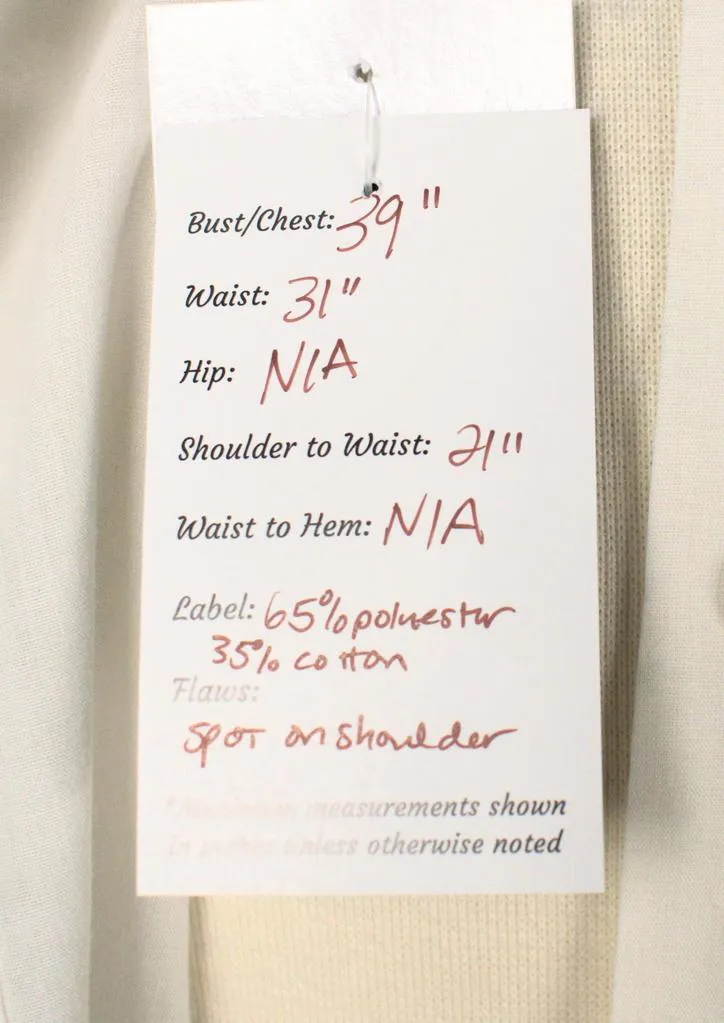 Bust/Chest: 39"
Waist: 31"
Hip: N/A
Shoulder to Waist: 21"
Waist to Hem: N/A
Label: 65% polyester
35% cotton
Flaws:
Spot on shoulder
* Maximum measurements shown
In inches unless otherwise noted